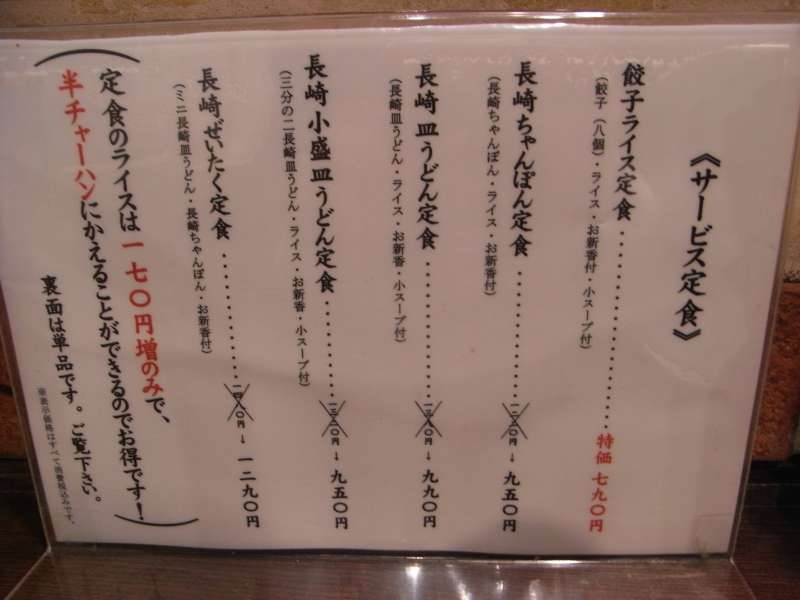 《サービス定食》
餃子ライス定食・・・・・・・・・・・・特価 七九〇円
（餃子（八個）・ライス・お新香付・小スープ付）
長崎ちゃんぽん定食・・・・・・・・・・・一二三〇円→九五〇円
（長崎ちゃんぽん・ライス・お新香付）
長崎皿うどん定食・・・・・・・・・・・→九九〇円
（長崎皿うどん・ライス・お新香・小スープ付）
長崎小盛皿うどん定食・・・・・・・・・→九五〇円
（三分の二長崎皿うどん・ライス・お新香・小スープ付）
長崎ぜいたく定食・・・・・・・・・・・→一二九〇円
（ミニ長崎皿うどん・長崎ちゃんぽん・お新香付）
（定食のライスは一七〇円増のみで、
半チャーハンにかえることができるのでお得です！）
裏面は単品です。ご覧下さい。
※表示価格はすべて消費税込みです。